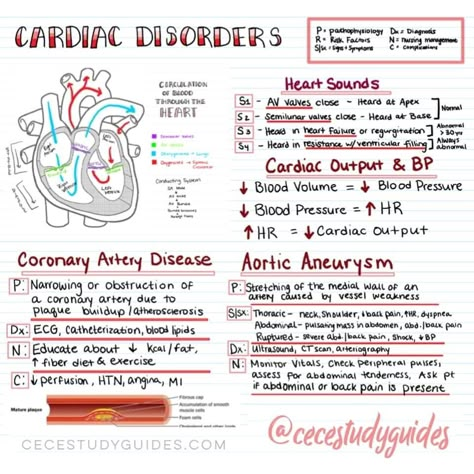 CARDIAC DISORDERS
P = pathophysiology Dx = Diagnosis
R = Risk Factors N = Nursing management
S|Sx = Signs + Symptoms C = complications
CIRCULATION
OF BLOOD
THROUGH THE
HEART
Semilunar Valves
AV Valves
Conducting System
SA Node
AV Node
Heart Sounds
S1 - AV Valves close - Heard at Apex
S2 - Semilunar valves close - Heard at Base
Normal
S3 - Heard in heart failure or regurgitation
Abnormal
> 30 yo
S4 - Heard in resistance w/ ventricular filling
Always
Abnormal
Cardiac Output & BP
↓ Blood Volume = ↓ Blood Pressure
↓ Blood Pressure = ↑ HR
↑ HR = ↓ Cardiac Output
Coronary Artery Disease
P: Narrowing or obstruction of
a coronary artery due to
plaque buildup/atherosclerosis
Dx: ECG, Catheterization, blood lipids
N: Educate about ↓ kcal/fat,
↑ fiber diet & exercise
C: ↓ perfusion, HTN, angina, MI
Mature plaque
Fibrous cap
Accumulation of smooth
muscle cells
Foam cells
Cholesterol and other lipids
CECESTUDYGUIDES.COM
Aortic Aneurysm
P: Stretching of the medial wall of an
artery caused by vessel weakness
S|Sx: Thoracic - neck, shoulder, ↓ back pain, ↑HR, dyspnea
Abdominal - pulsating mass in abdomen, abd./back pain
Ruptured - severe abd./back pain, shock, ↓ BP
Dx: Ultrasound, CT scan, arteriography
N: Monitor Vitals, Check peripheral pulses,
assess for abdominal tenderness, Ask pt
if abdominal or back pain is present
@cecestudyguides